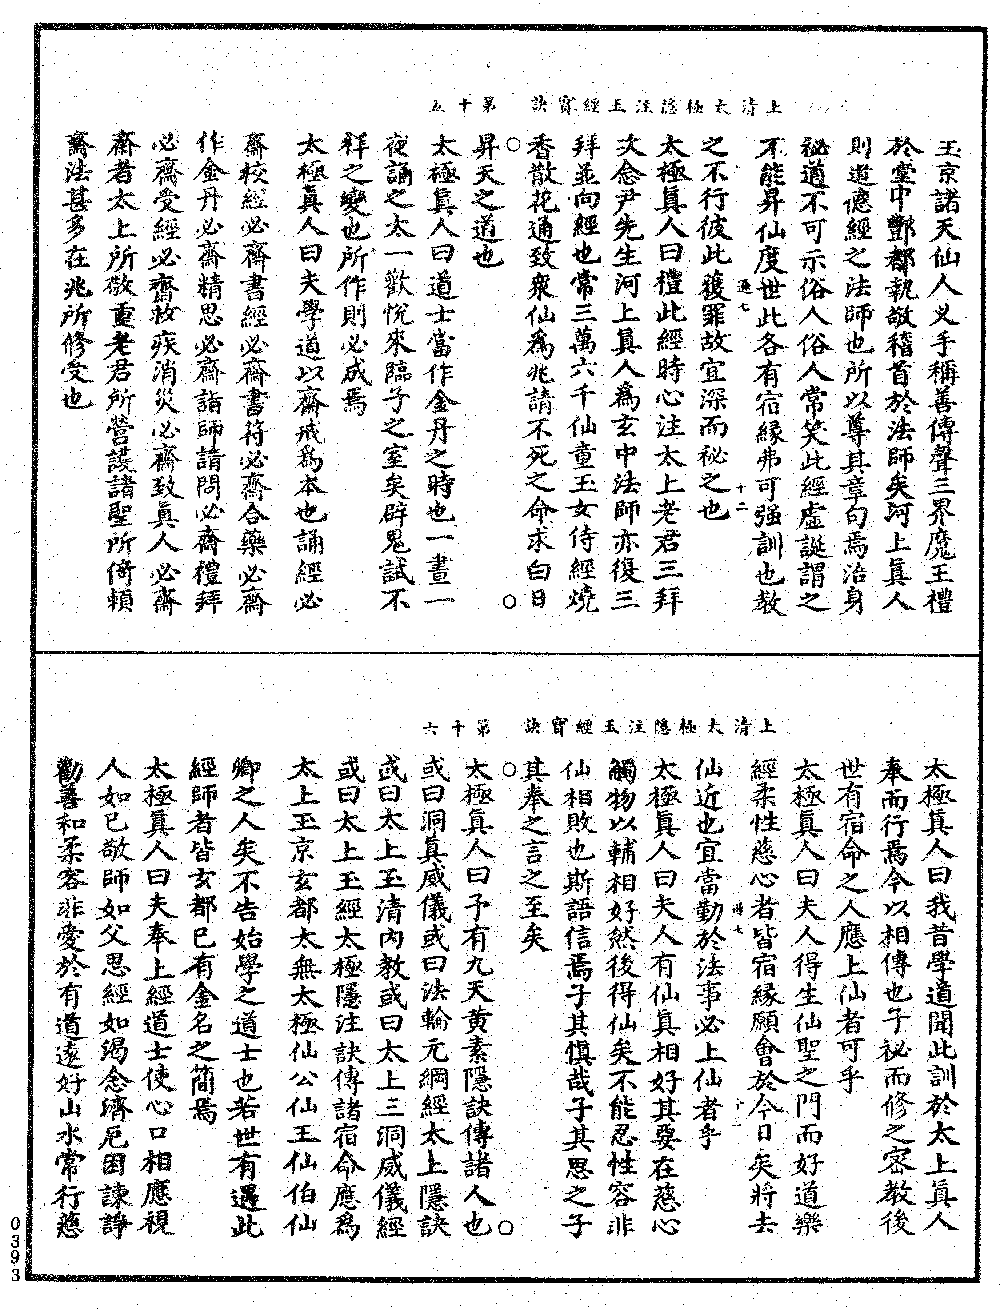 上清太極隱注玉經寶訣　第十五
玉京諸天仙人叉手稱善傳聲三界魔王禮
於臺中酆都執敬稽首於法師矣河上真人
則道德經之法師也所以尊其章句焉治身
秘道不可示俗人俗人常笑此經虛誕謂之
不能昇仙度世此各有宿緣弗可强訓也教
之不行彼此獲罪故宜深而秘之也
太極真人曰禮此經時心注太上老君三拜
次念尹先生河上真人為玄中法師亦復三
拜並向經也常三萬六千仙童玉女侍經燒
香散花通致衆仙為兆請不死之命求白日
昇天之道也
太極真人曰道士當作金丹之時也一晝一
夜誦之太一歡悅來臨子之室矣辟鬼試不
祥之變也所作則必成焉
太極真人曰夫學道以齋戒為本也誦經必
齋校經必齋書經必齋書符必齋合藥必齋
作金丹必齋精思必齋詣師請問必齋禮拜
必齋受經必齋救疾消災必齋致真人必齋
齋者太上所敬重老君所營護諸聖所倚賴
齋法甚多在兆所修受也
上清太極隱注玉經寶訣　第十六
太極真人曰我昔學道聞此訓於太上真人
奉而行焉今以相傳也子秘而修之密教後
世有宿命之人應上仙者可乎
太極真人曰夫人得生仙聖之門而好道樂
經柔性慈心者皆宿緣願會於今日矣將去
仙近也宜當勤於法事必上仙者乎
太極真人曰夫人有仙真相好其要在慈心
觸物以輔相好然後得仙矣不能忍性容非
仙相敗也斯語信焉子其慎哉子其思之子
其奉之言之至矣
太極真人曰予有九天黃素隱訣傳諸人也
或曰洞真威儀或曰法輪元綱經太上隱訣
或曰太上玉清內教或曰太上三洞威儀經
或曰太上玉經太極隱注訣傳諸宿命應為
太上玉京玄都太無太極仙公仙王仙伯仙
卿之人矣不告始學之道士也若世有遇此
經師者皆玄都已有金名之簡焉
太極真人曰夫奉上經道士使心口相應視
人如己敬師如父思經如渴念濟厄困諫諍
勸善和柔容非愛於有道遠好山水常行慈
0393